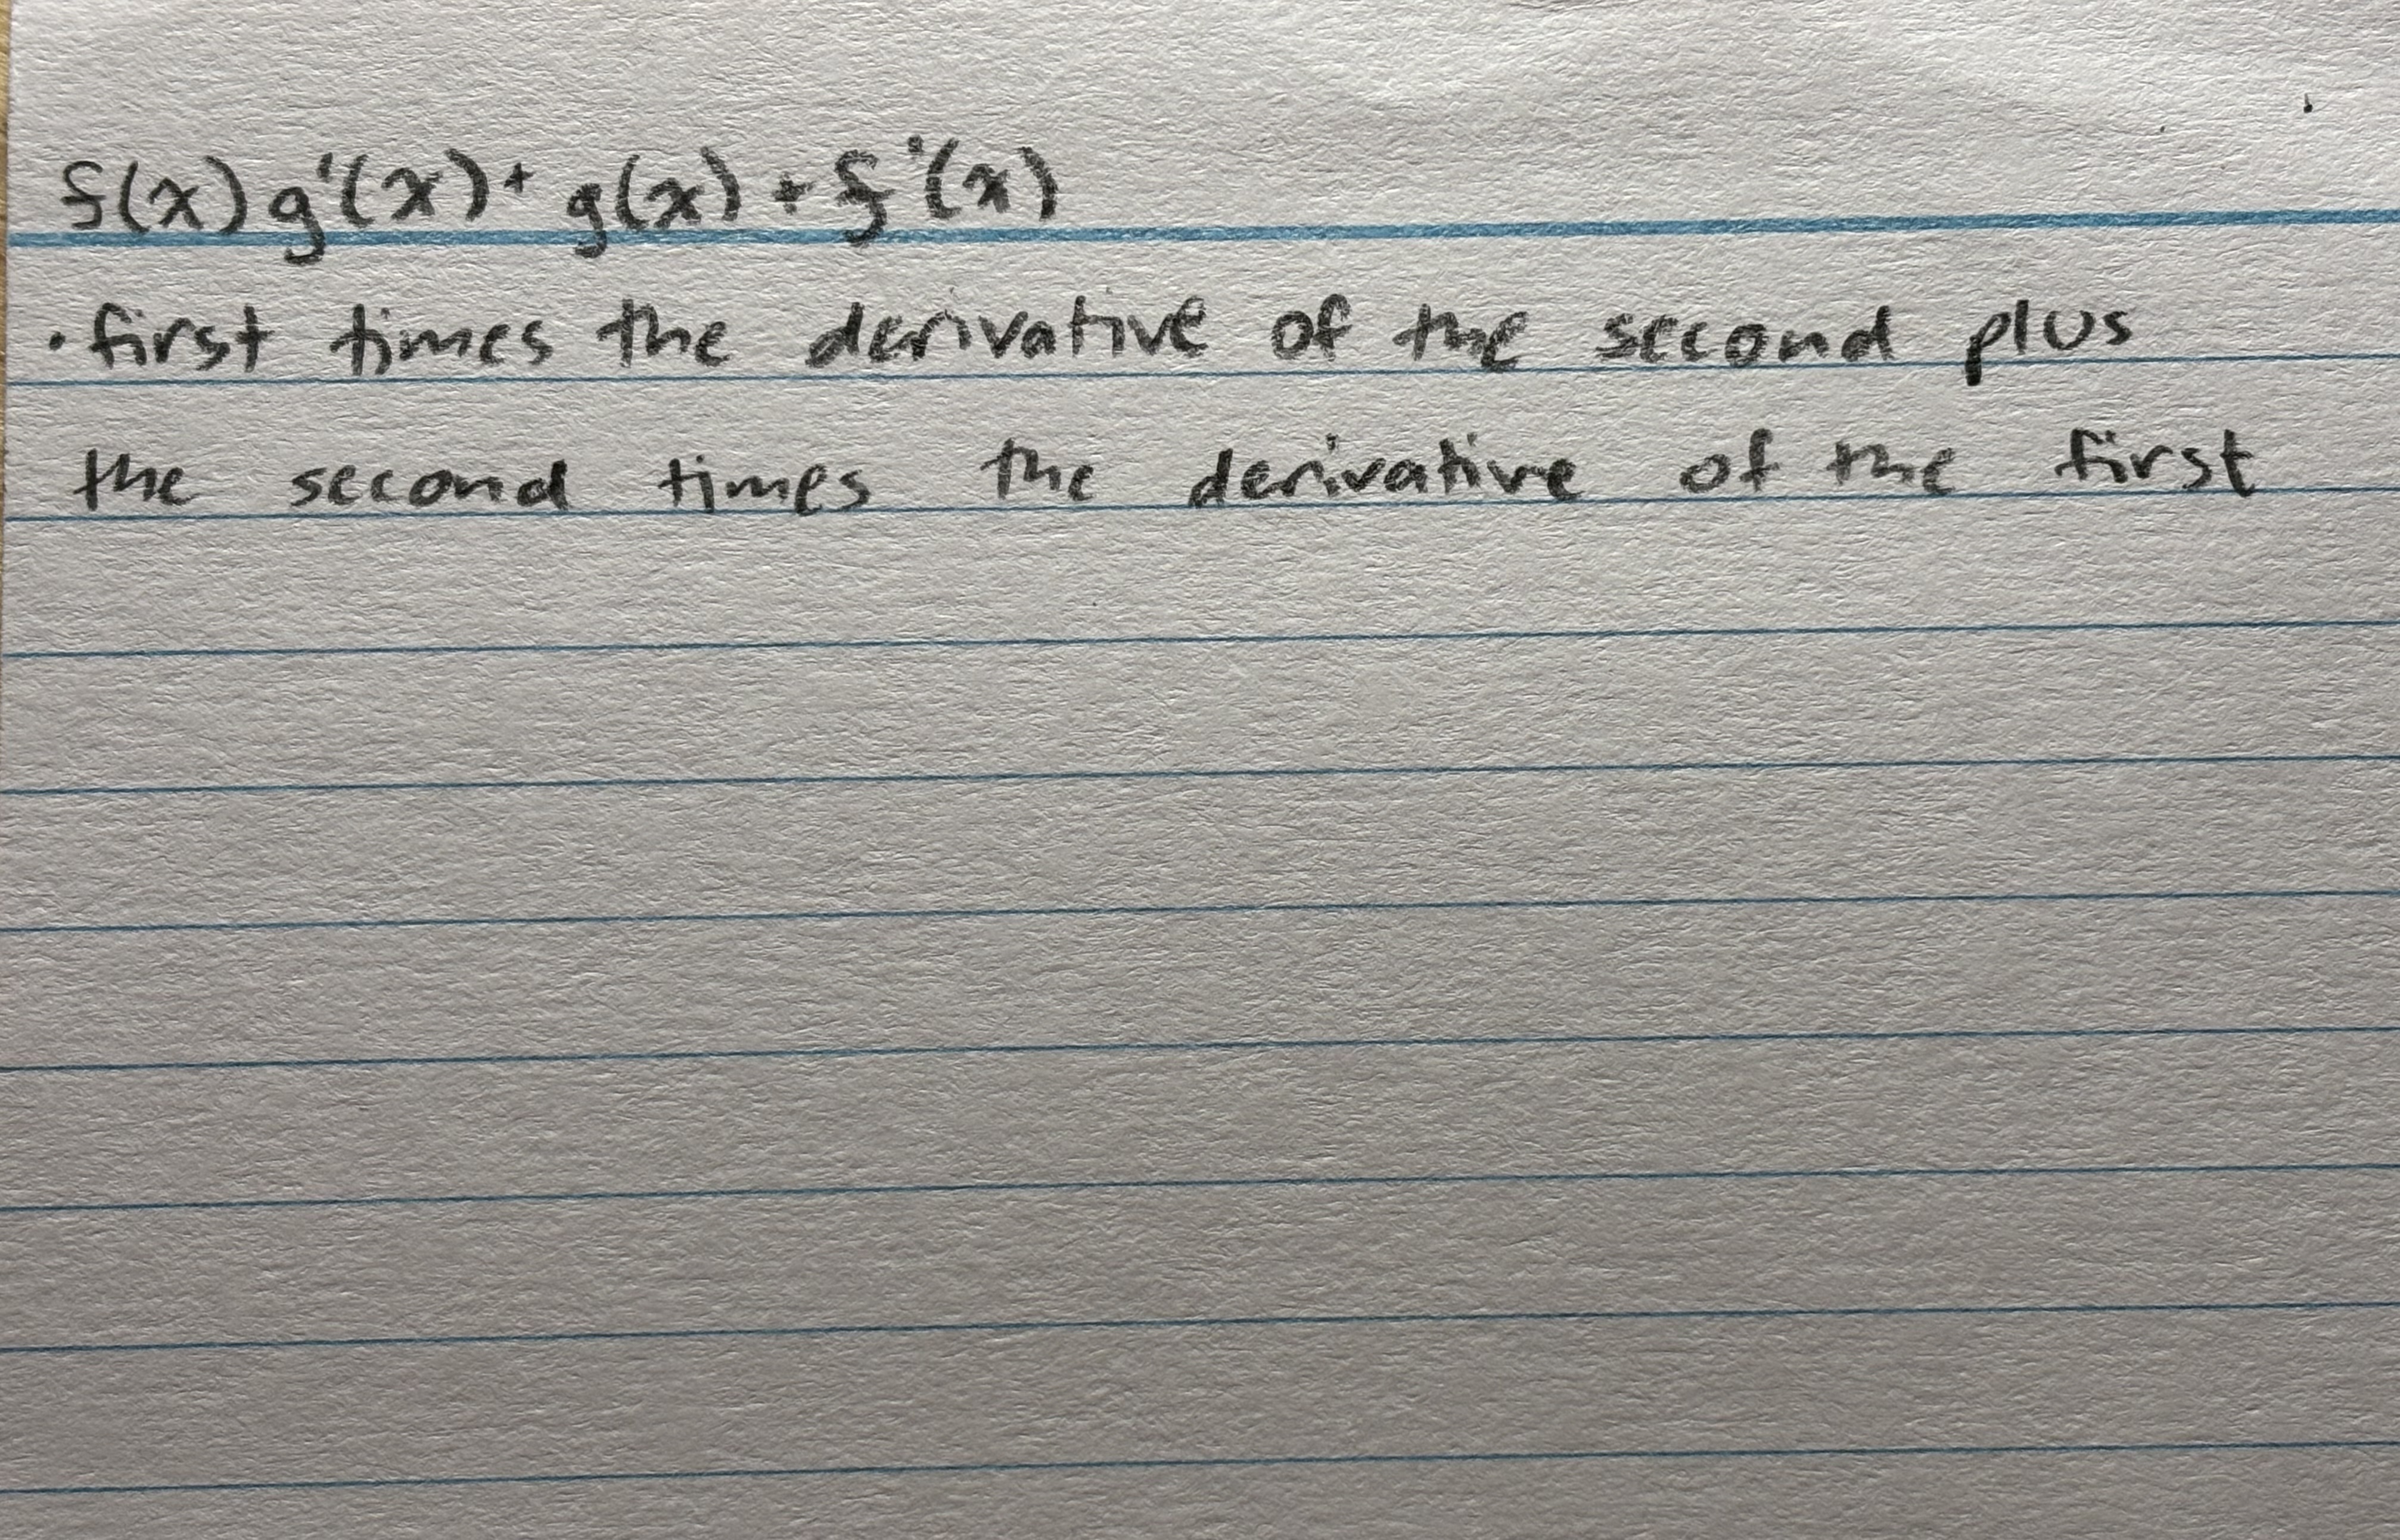 f(x)g'(x)+ g(x)+f'(x)
· first times the derivative of the second plus
the second times the derivative of the first